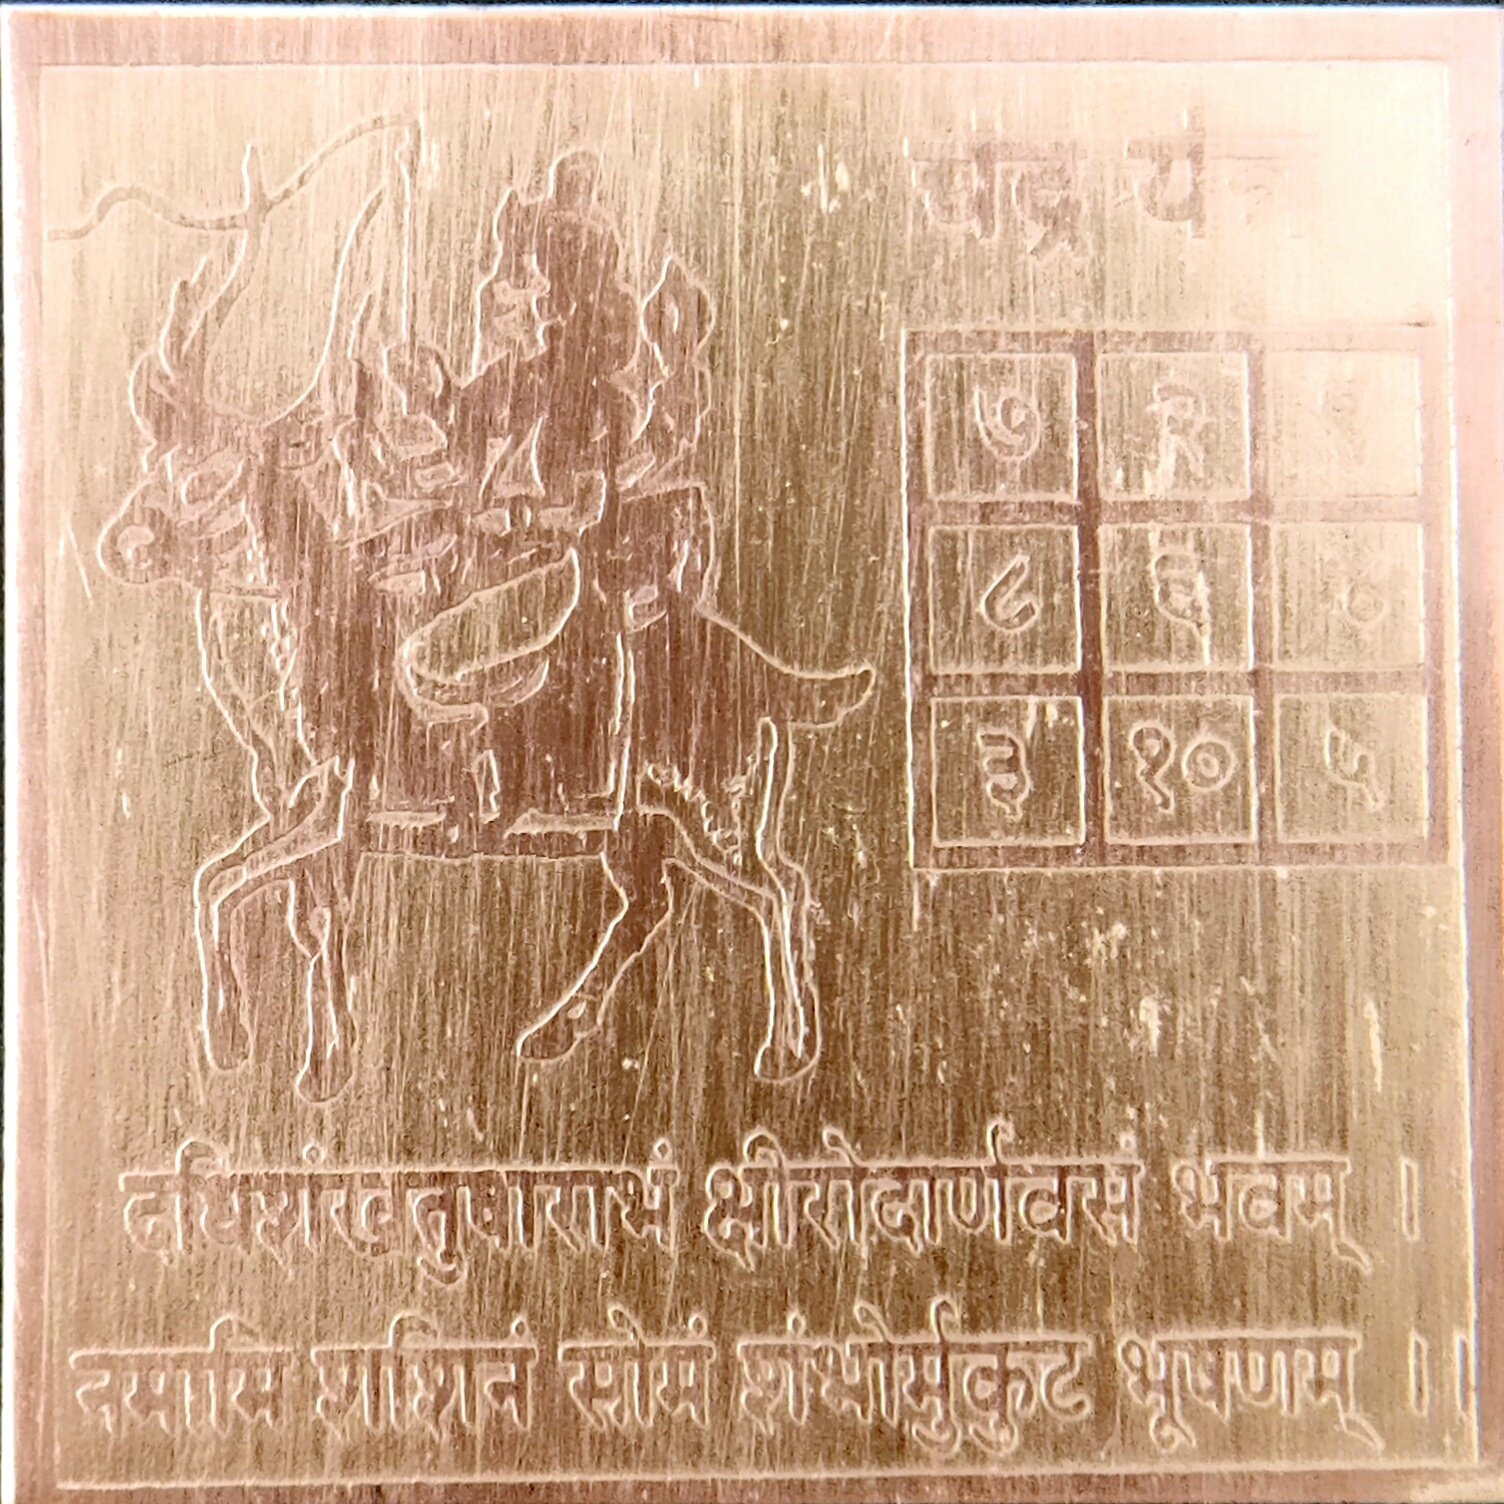 चंद्र
७ २
८ ६ ४
३ १० ५
दधिशंखतुषाराभं क्षीरोदार्णवसं भवम् ।
नमामि शशिनं सोमं शंभोर्मुकुट भूषणम् ।।